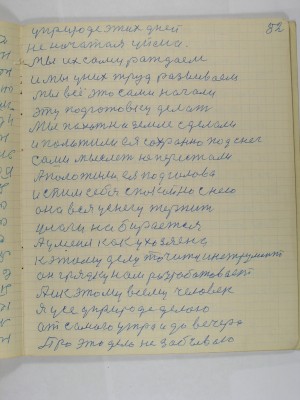 82
у природе этих дней
не началася уйма.
мы их сами раждаем
и мы у них труд развиваем
мы всё это сами начали
эту подготовку делать
Мы на земле сделали
и полотим ея сохранно под снег
сами мыслет не перестали
А положили ея под голова
и спим себя спокойно с нею
она вся у снегу тержит
у ноги не бирается
А у меня как у хозяена
к этому делу точить инструмент
он грядку нам розработовает
А як этому всему человек
Я усе у природе делаю
от самого утра и до вечера
Про это дело не забываю